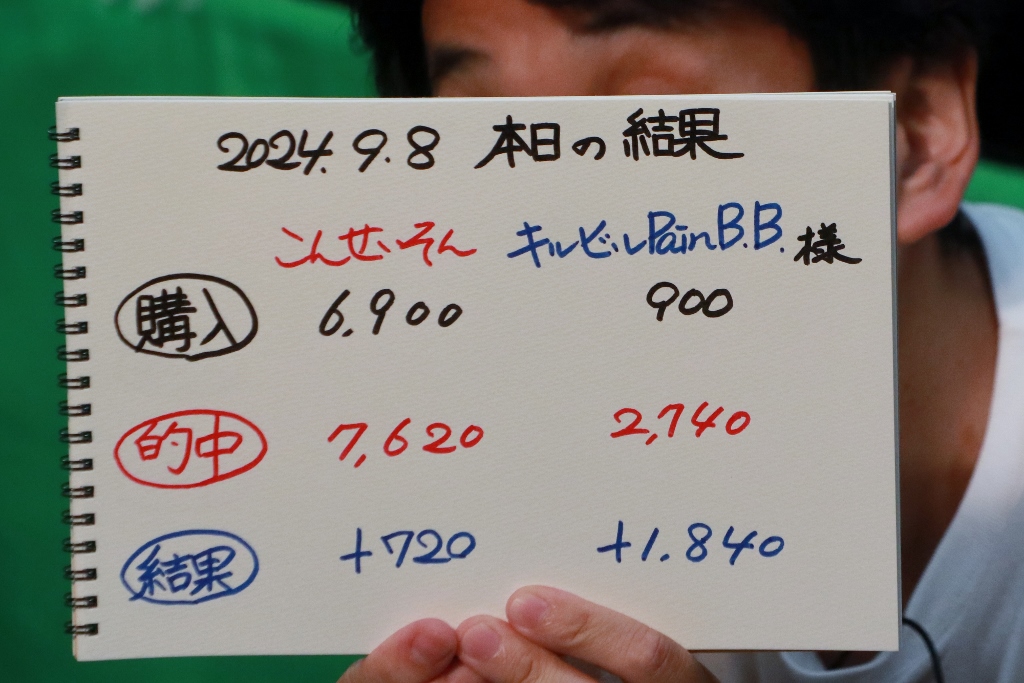 2024.9.8 本日の結果
こんせいそん キルビルPainB.B.様
購入 6,900 900
的中 7,620 2,740
結果 +720 +1.840